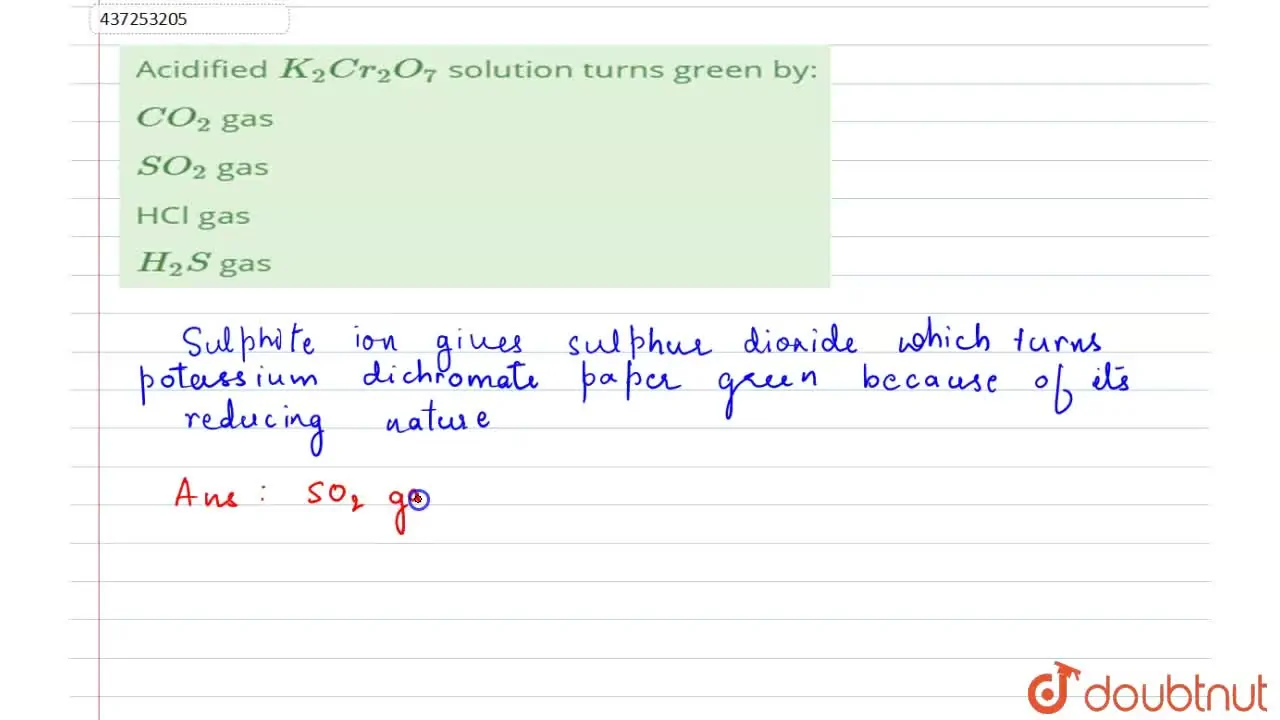 437253205
Acidified K₂Cr₂O₇ solution turns green by:
CO₂ gas
SO₂ gas
HCl gas
H₂S gas
Sulphite ion gives sulphur dioxide which turns
potassium dichromate paper green because of its
reducing nature
Ans : SO₂ ga
doubtnut